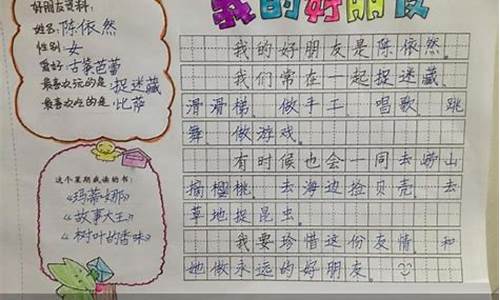 我的好朋友
好朋友资料:
姓名:陈依然
性别:女
爱好:古筝芭蕾
最喜欢玩的是:捉迷藏
最喜欢吃的是:比萨
这个星期我读的书:
《玛蒂娜》
《故事大王》
《树叶的香味》
我的好朋友是陈依然。
我们常在一起捉迷藏、
滑滑梯、做手工、唱歌、跳
舞、做游戏。
有时候也会一同去崂山
摘樱桃、去海边捡贝壳、去
草地捉昆虫。
我要珍惜这份友情,和
她做永远的好朋友。